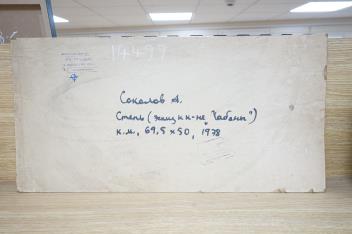 14499
Соколов А.
Степь (эскиз к к-не "Кабаны")
к.м., 69,5 х 50, 1978